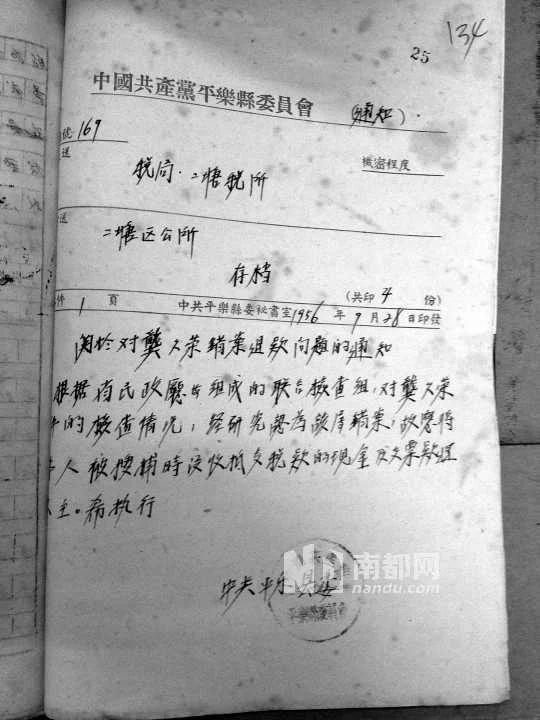 134
25
中國共產黨平樂縣委員會
(通知)
號 169
送
機密程度
税局·二塘税所
送
二塘区公所
存档
件 1 頁
(共印 4 份)
中共平樂縣委祕書室 1956 年 9 月 28 日印發
関於对龔久荣销案退款问题的通知
根据省民政廳 组成的联合檢查组,对龔久荣
的檢查情况,経研究認為 销案,故應将
人被捜捕时没收抵交税款的现金及 票款退
主。希执行
中共平乐县委
南都网
nandu.com
平樂縣委員會